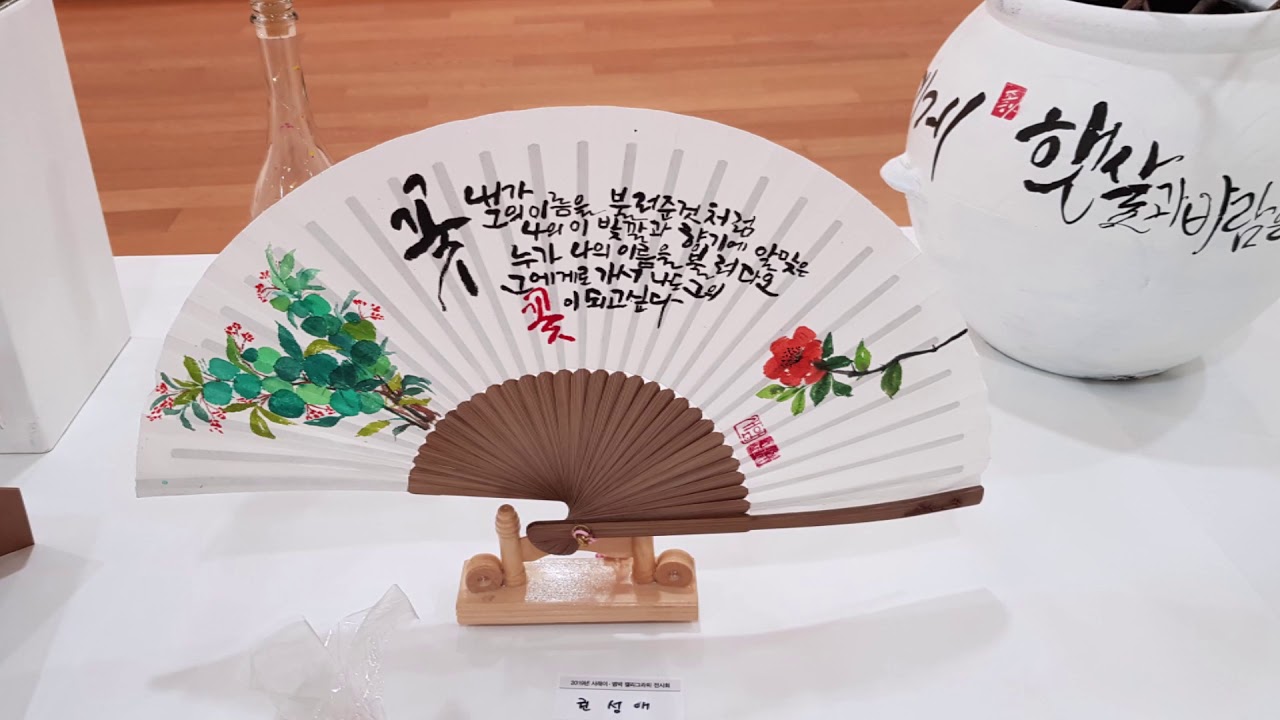 꽃
내가
그의 이름을 불러준것처럼
나의 이 빛깔과 향기에 알맞은
누가 나의 이름을 불러다오
그에게로 가서 나도 그의
꽃이 되고싶다
햇살과 바람을
2019년 캘리그라피 전시회
권성애